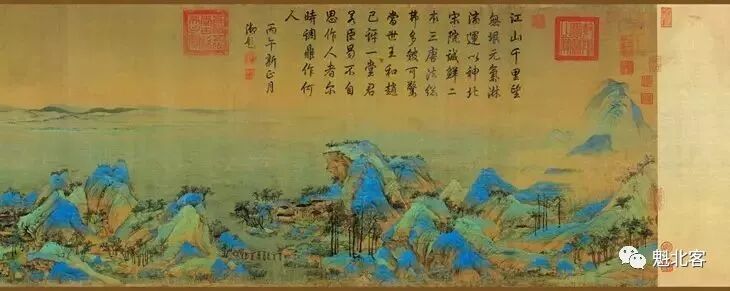 江山千里望
無垠元氣淋
漓運以神北
宋院誠鮮二
本三唐法總
弗多皴可驚
當世王和趙
已訝一堂君
與臣曷不自
思作人者尔
時調鼎作何
人
丙午新正月
御題
魁北客